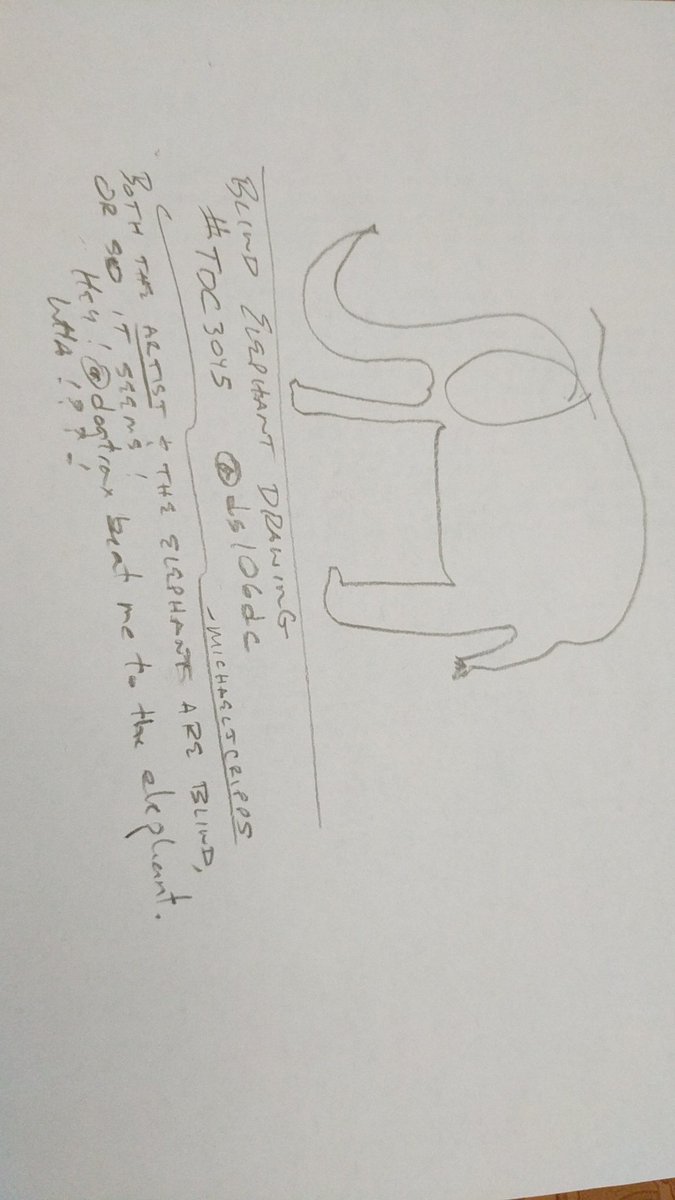 BLIND ELEPHANT DRAWING
#TDC3045 @ds106dc
-MICHAELJCRIPPS
BOTH THE ARTIST & THE ELEPHANTS ARE BLIND,
OR SO IT SEEMS!
Hey! @dogtrax beat me to the elephant.
WHA!?!